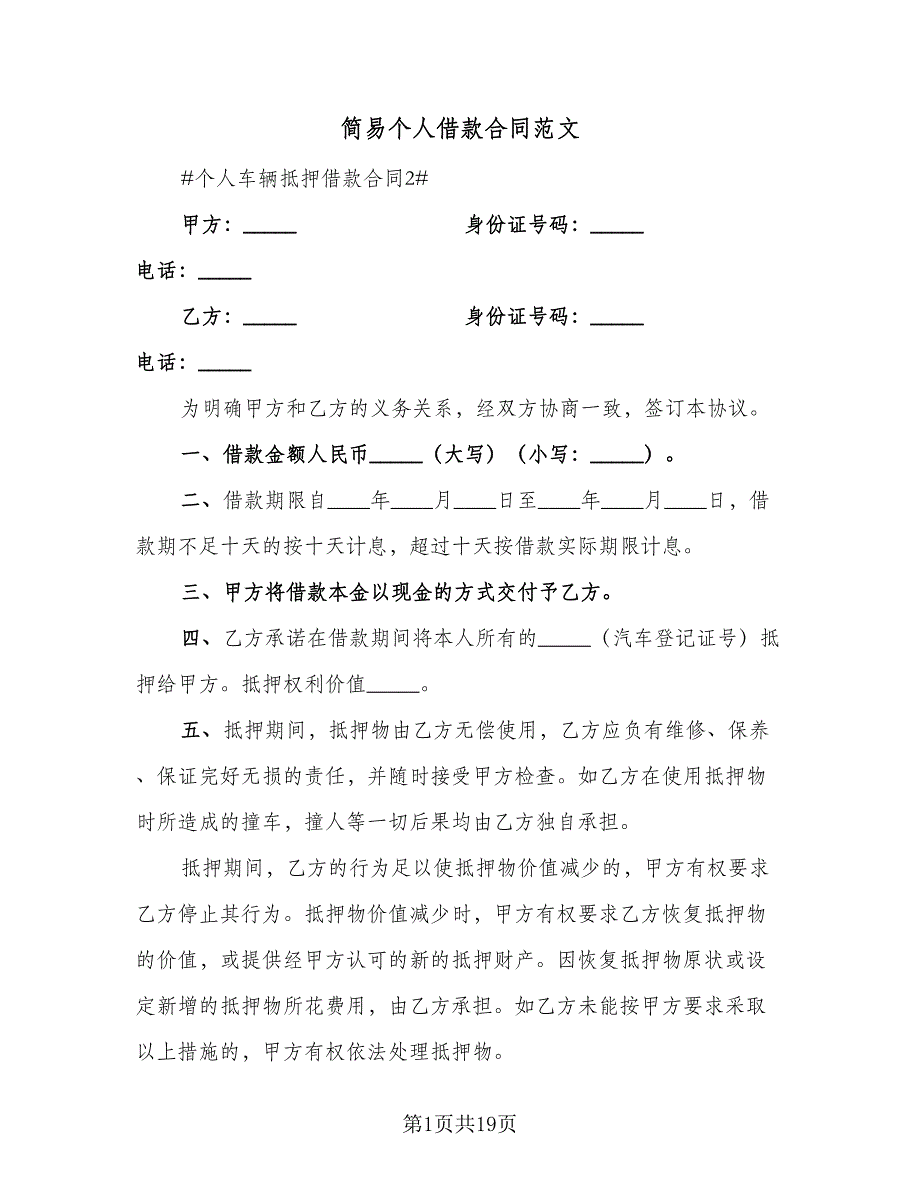 简易个人借款合同范文
#个人车辆抵押借款合同2#
甲方：_____ 身份证号码：_____
电话：_____
乙方：_____ 身份证号码：_____
电话：_____
为明确甲方和乙方的义务关系，经双方协商一致，签订本协议。
一、借款金额人民币_____（大写）（小写：_____）。
二、借款期限自____年____月____日至____年____月____日，借
款期不足十天的按十天计息，超过十天按借款实际期限计息。
三、甲方将借款本金以现金的方式交付予乙方。
四、乙方承诺在借款期间将本人所有的_____（汽车登记证号）抵
押给甲方。抵押权利价值_____。
五、抵押期间，抵押物由乙方无偿使用，乙方应负有维修、保养
、保证完好无损的责任，并随时接受甲方检查。如乙方在使用抵押物
时所造成的撞车，撞人等一切后果均由乙方独自承担。
抵押期间，乙方的行为足以使抵押物价值减少的，甲方有权要求
乙方停止其行为。抵押物价值减少时，甲方有权要求乙方恢复抵押物
的价值，或提供经甲方认可的新的抵押财产。因恢复抵押物原状或设
定新增的抵押物所花费用，由乙方承担。如乙方未能按甲方要求采取
以上措施的，甲方有权依法处理抵押物。
第1页共19页